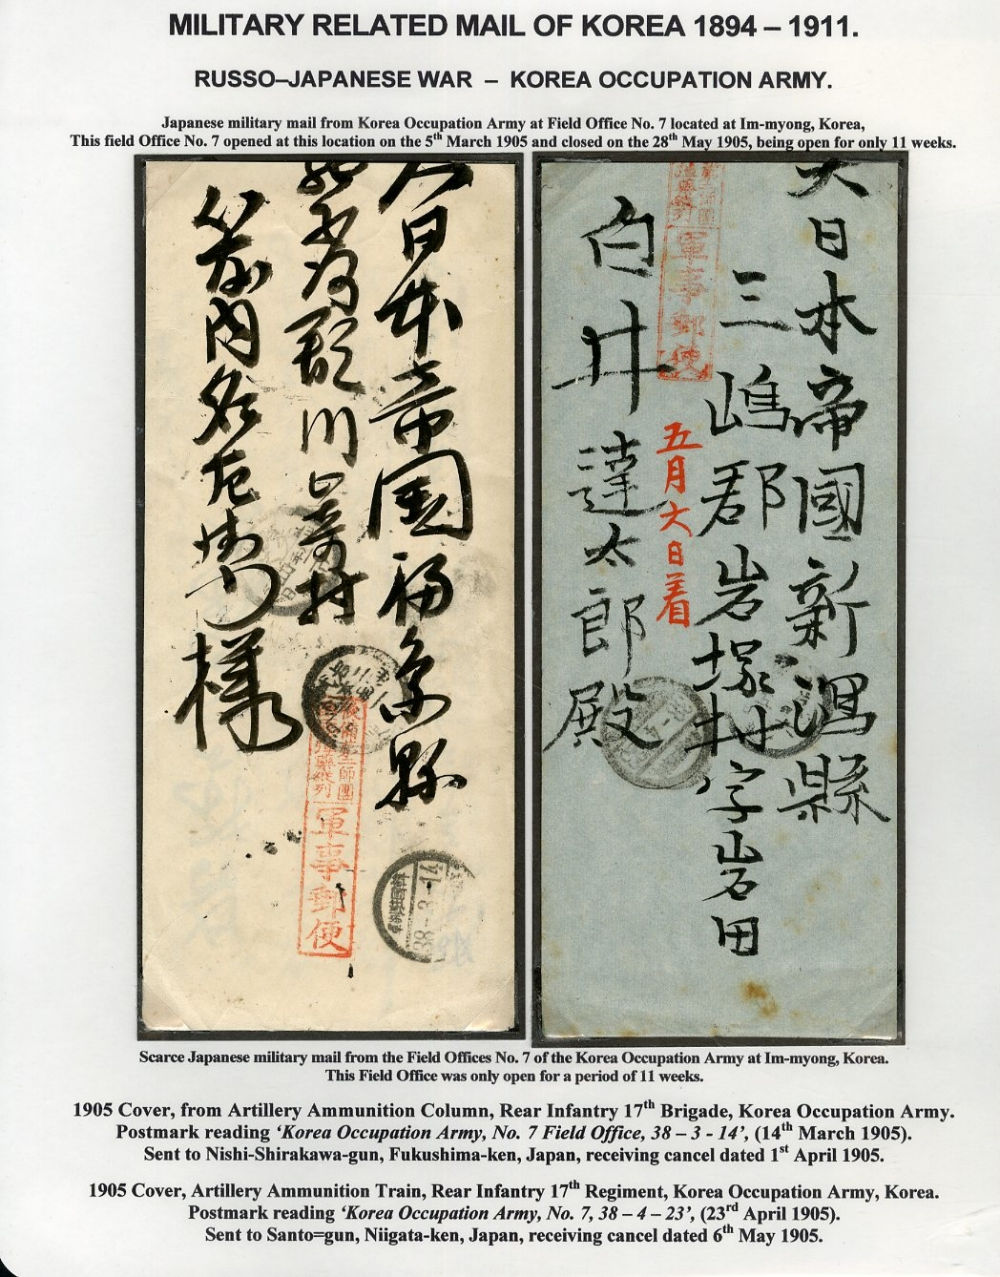 MILITARY RELATED MAIL OF KOREA 1894 – 1911.
RUSSO–JAPANESE WAR – KOREA OCCUPATION ARMY.
Japanese military mail from Korea Occupation Army at Field Office No. 7 located at Im-myong, Korea,
This field Office No. 7 opened at this location on the 5th March 1905 and closed on the 28th May 1905, being open for only 11 weeks.
大日本帝国福島縣
郡川崎村
様
軍事郵便
38-3-14
大日本帝國新潟縣
三嶋郡岩塚村字岩田
軍事郵便
五月六日着
白井達太郎殿
Scarce Japanese military mail from the Field Offices No. 7 of the Korea Occupation Army at Im-myong, Korea.
This Field Office was only open for a period of 11 weeks.
1905 Cover, from Artillery Ammunition Column, Rear Infantry 17th Brigade, Korea Occupation Army.
Postmark reading ‘Korea Occupation Army, No. 7 Field Office, 38 – 3 - 14’, (14th March 1905).
Sent to Nishi-Shirakawa-gun, Fukushima-ken, Japan, receiving cancel dated 1st April 1905.
1905 Cover, Artillery Ammunition Train, Rear Infantry 17th Regiment, Korea Occupation Army, Korea.
Postmark reading ‘Korea Occupation Army, No. 7, 38 – 4 – 23’, (23rd April 1905).
Sent to Santo=gun, Niigata-ken, Japan, receiving cancel dated 6th May 1905.